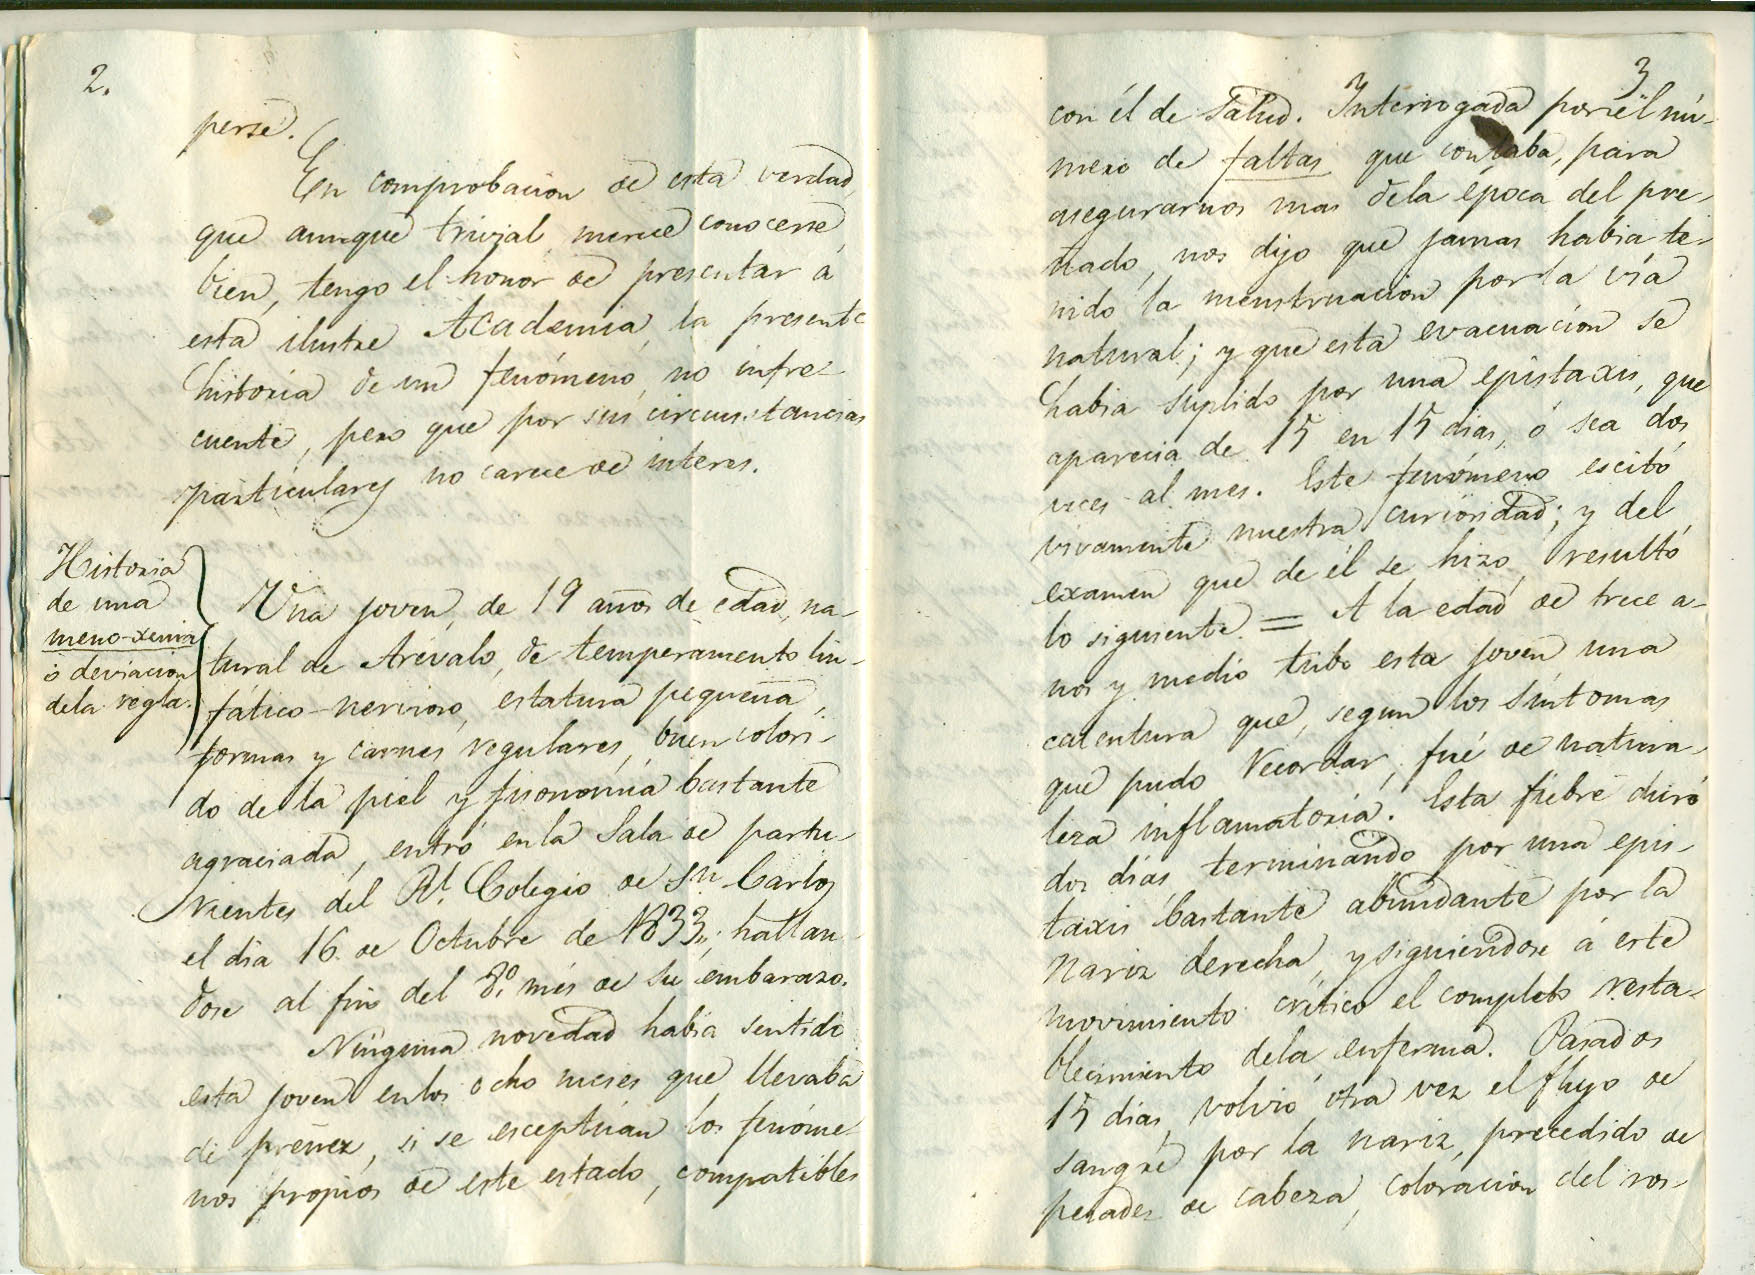 2.
perse.
En comprobacion de esta verdad,
que aunque trivial merece conocerse
bien, tengo el honor de presentar á
esta ilustre Academia, la presente
historia de un fenómeno, no infre-
cuente, pero que por sus circunstancias
particulares no carece de interes.
Historia
de una
meno-xenia
ó deviacion
dela regla.
Una joven, de 19 años de edad, na-
tural de Arévalo, de temperamento lin-
fático-nervioso, estatura pequeña,
formas y carnes regulares, buen colori-
do de la piel y fisonomía bastante
agraciada, entró en la Sala de partu-
rientes del Rl. Colegio de Sn Carlos
el dia 16 de Octubre de 1833,, hallan-
dose al fin del 8º mes de su embarazo.
Ninguna novedad habia sentido
esta joven en los ocho meses que llevaba
de preñez, si se esceptúan los fenóme-
nos propios de este estado, compatibles
3
con él de salud. Interrogada por él nú-
mero de faltas que contaba, para
asegurarnos mas dela época del pre-
ñado, nos dijo que jamas habia te-
nido la menstruacion por la via
natural; y que esta evacuacion se
habia suplido por una epistaxis, que
aparecia de 15 en 15 dias, ó sea dos
veces al mes. Este fenómeno escitó
vivamente nuestra curiosidad; y del
examen que de él se hizo resultó
lo siguiente = A la edad de trece a-
ños y medio tubo esta joven una
calentura que, segun los síntomas
que pudo recordar, fué de natura-
leza inflamatoria. Esta fiebre duró
dos dias, terminando por una epis-
taxis bastante abundante por la
nariz derecha, y siguiendose á este
movimiento crítico el completo resta-
blecimiento dela enferma. Pasados
15 dias, volvió otra vez el flujo de
sangre por la nariz, precedido de
pesadez de cabeza, coloracion del ros-